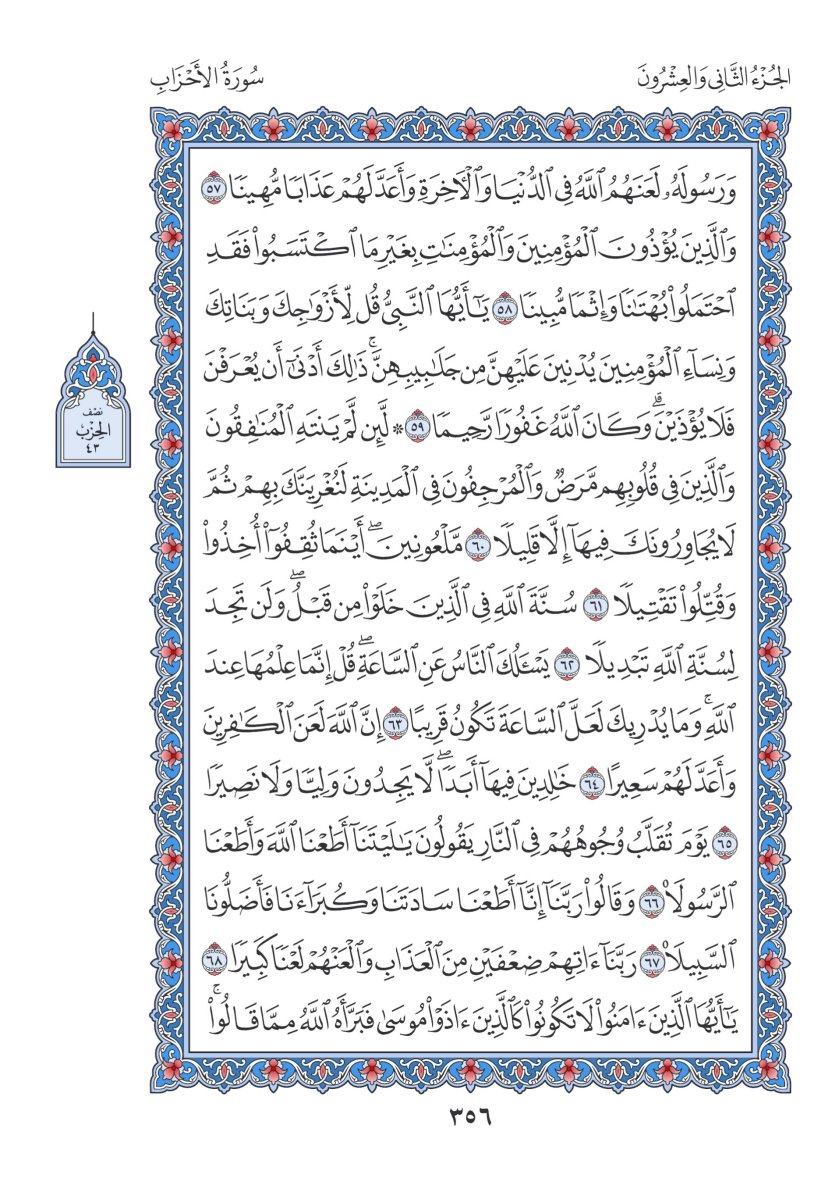 الجُزْءُ الثَّانِى وَالعِشْرُونَ
سُورَةُ الأَحْزَابِ
وَرَسُولَهُۥ لَعَنَهُمُ ٱللَّهُ فِى ٱلدُّنْيَا وَٱلْأَخِرَةِ وَأَعَدَّ لَهُمْ عَذَابًا مُّهِينًا ٥٧
وَٱلَّذِينَ يُؤْذُونَ ٱلْمُؤْمِنِينَ وَٱلْمُؤْمِنَٰتِ بِغَيْرِ مَا ٱكْتَسَبُوا۟ فَقَدِ
ٱحْتَمَلُوا۟ بُهْتَٰنًا وَإِثْمًا مُّبِينًا ٥٨ يَٰٓأَيُّهَا ٱلنَّبِىُّ قُل لِّأَزْوَٰجِكَ وَبَنَاتِكَ
وَنِسَآءِ ٱلْمُؤْمِنِينَ يُدْنِينَ عَلَيْهِنَّ مِن جَلَٰبِيبِهِنَّ ۚ ذَٰلِكَ أَدْنَىٰٓ أَن يُعْرَفْنَ
فَلَا يُؤْذَيْنَ ۗ وَكَانَ ٱللَّهُ غَفُورًا رَّحِيمًا ٥٩ * لَّئِن لَّمْ يَنتَهِ ٱلْمُنَٰفِقُونَ
وَٱلَّذِينَ فِى قُلُوبِهِم مَّرَضٌ وَٱلْمُرْجِفُونَ فِى ٱلْمَدِينَةِ لَنُغْرِيَنَّكَ بِهِمْ ثُمَّ
لَا يُجَاوِرُونَكَ فِيهَآ إِلَّا قَلِيلًا ٦٠ مَّلْعُونِينَ ۖ أَيْنَمَا ثُقِفُوٓا۟ أُخِذُوا۟
وَقُتِّلُوا۟ تَقْتِيلًا ٦١ سُنَّةَ ٱللَّهِ فِى ٱلَّذِينَ خَلَوْا۟ مِن قَبْلُ ۖ وَلَن تَجِدَ
لِسُنَّةِ ٱللَّهِ تَبْدِيلًا ٦٢ يَسْـَٔلُكَ ٱلنَّاسُ عَنِ ٱلسَّاعَةِ ۖ قُلْ إِنَّمَا عِلْمُهَا عِندَ
ٱللَّهِ ۚ وَمَا يُدْرِيكَ لَعَلَّ ٱلسَّاعَةَ تَكُونُ قَرِيبًا ٦٣ إِنَّ ٱللَّهَ لَعَنَ ٱلْكَٰفِرِينَ
وَأَعَدَّ لَهُمْ سَعِيرًا ٦٤ خَٰلِدِينَ فِيهَآ أَبَدًا ۖ لَّا يَجِدُونَ وَلِيًّا وَلَا نَصِيرًا
٦٥ يَوْمَ تُقَلَّبُ وُجُوهُهُمْ فِى ٱلنَّارِ يَقُولُونَ يَٰلَيْتَنَآ أَطَعْنَا ٱللَّهَ وَأَطَعْنَا
ٱلرَّسُولَا۠ ٦٦ وَقَالُوا۟ رَبَّنَآ إِنَّآ أَطَعْنَا سَادَتَنَا وَكُبَرَآءَنَا فَأَضَلُّونَا
ٱلسَّبِيلَا۠ ٦٧ رَبَّنَآ ءَاتِهِمْ ضِعْفَيْنِ مِنَ ٱلْعَذَابِ وَٱلْعَنْهُمْ لَعْنًا كَبِيرًا ٦٨
يَٰٓأَيُّهَا ٱلَّذِينَ ءَامَنُوا۟ لَا تَكُونُوا۟ كَٱلَّذِينَ ءَاذَوْا۟ مُوسَىٰ فَبَرَّأَهُ ٱللَّهُ مِمَّا قَالُوا۟ ۚ
نِصْف
الحِزْب
٤٣
٣٥٦